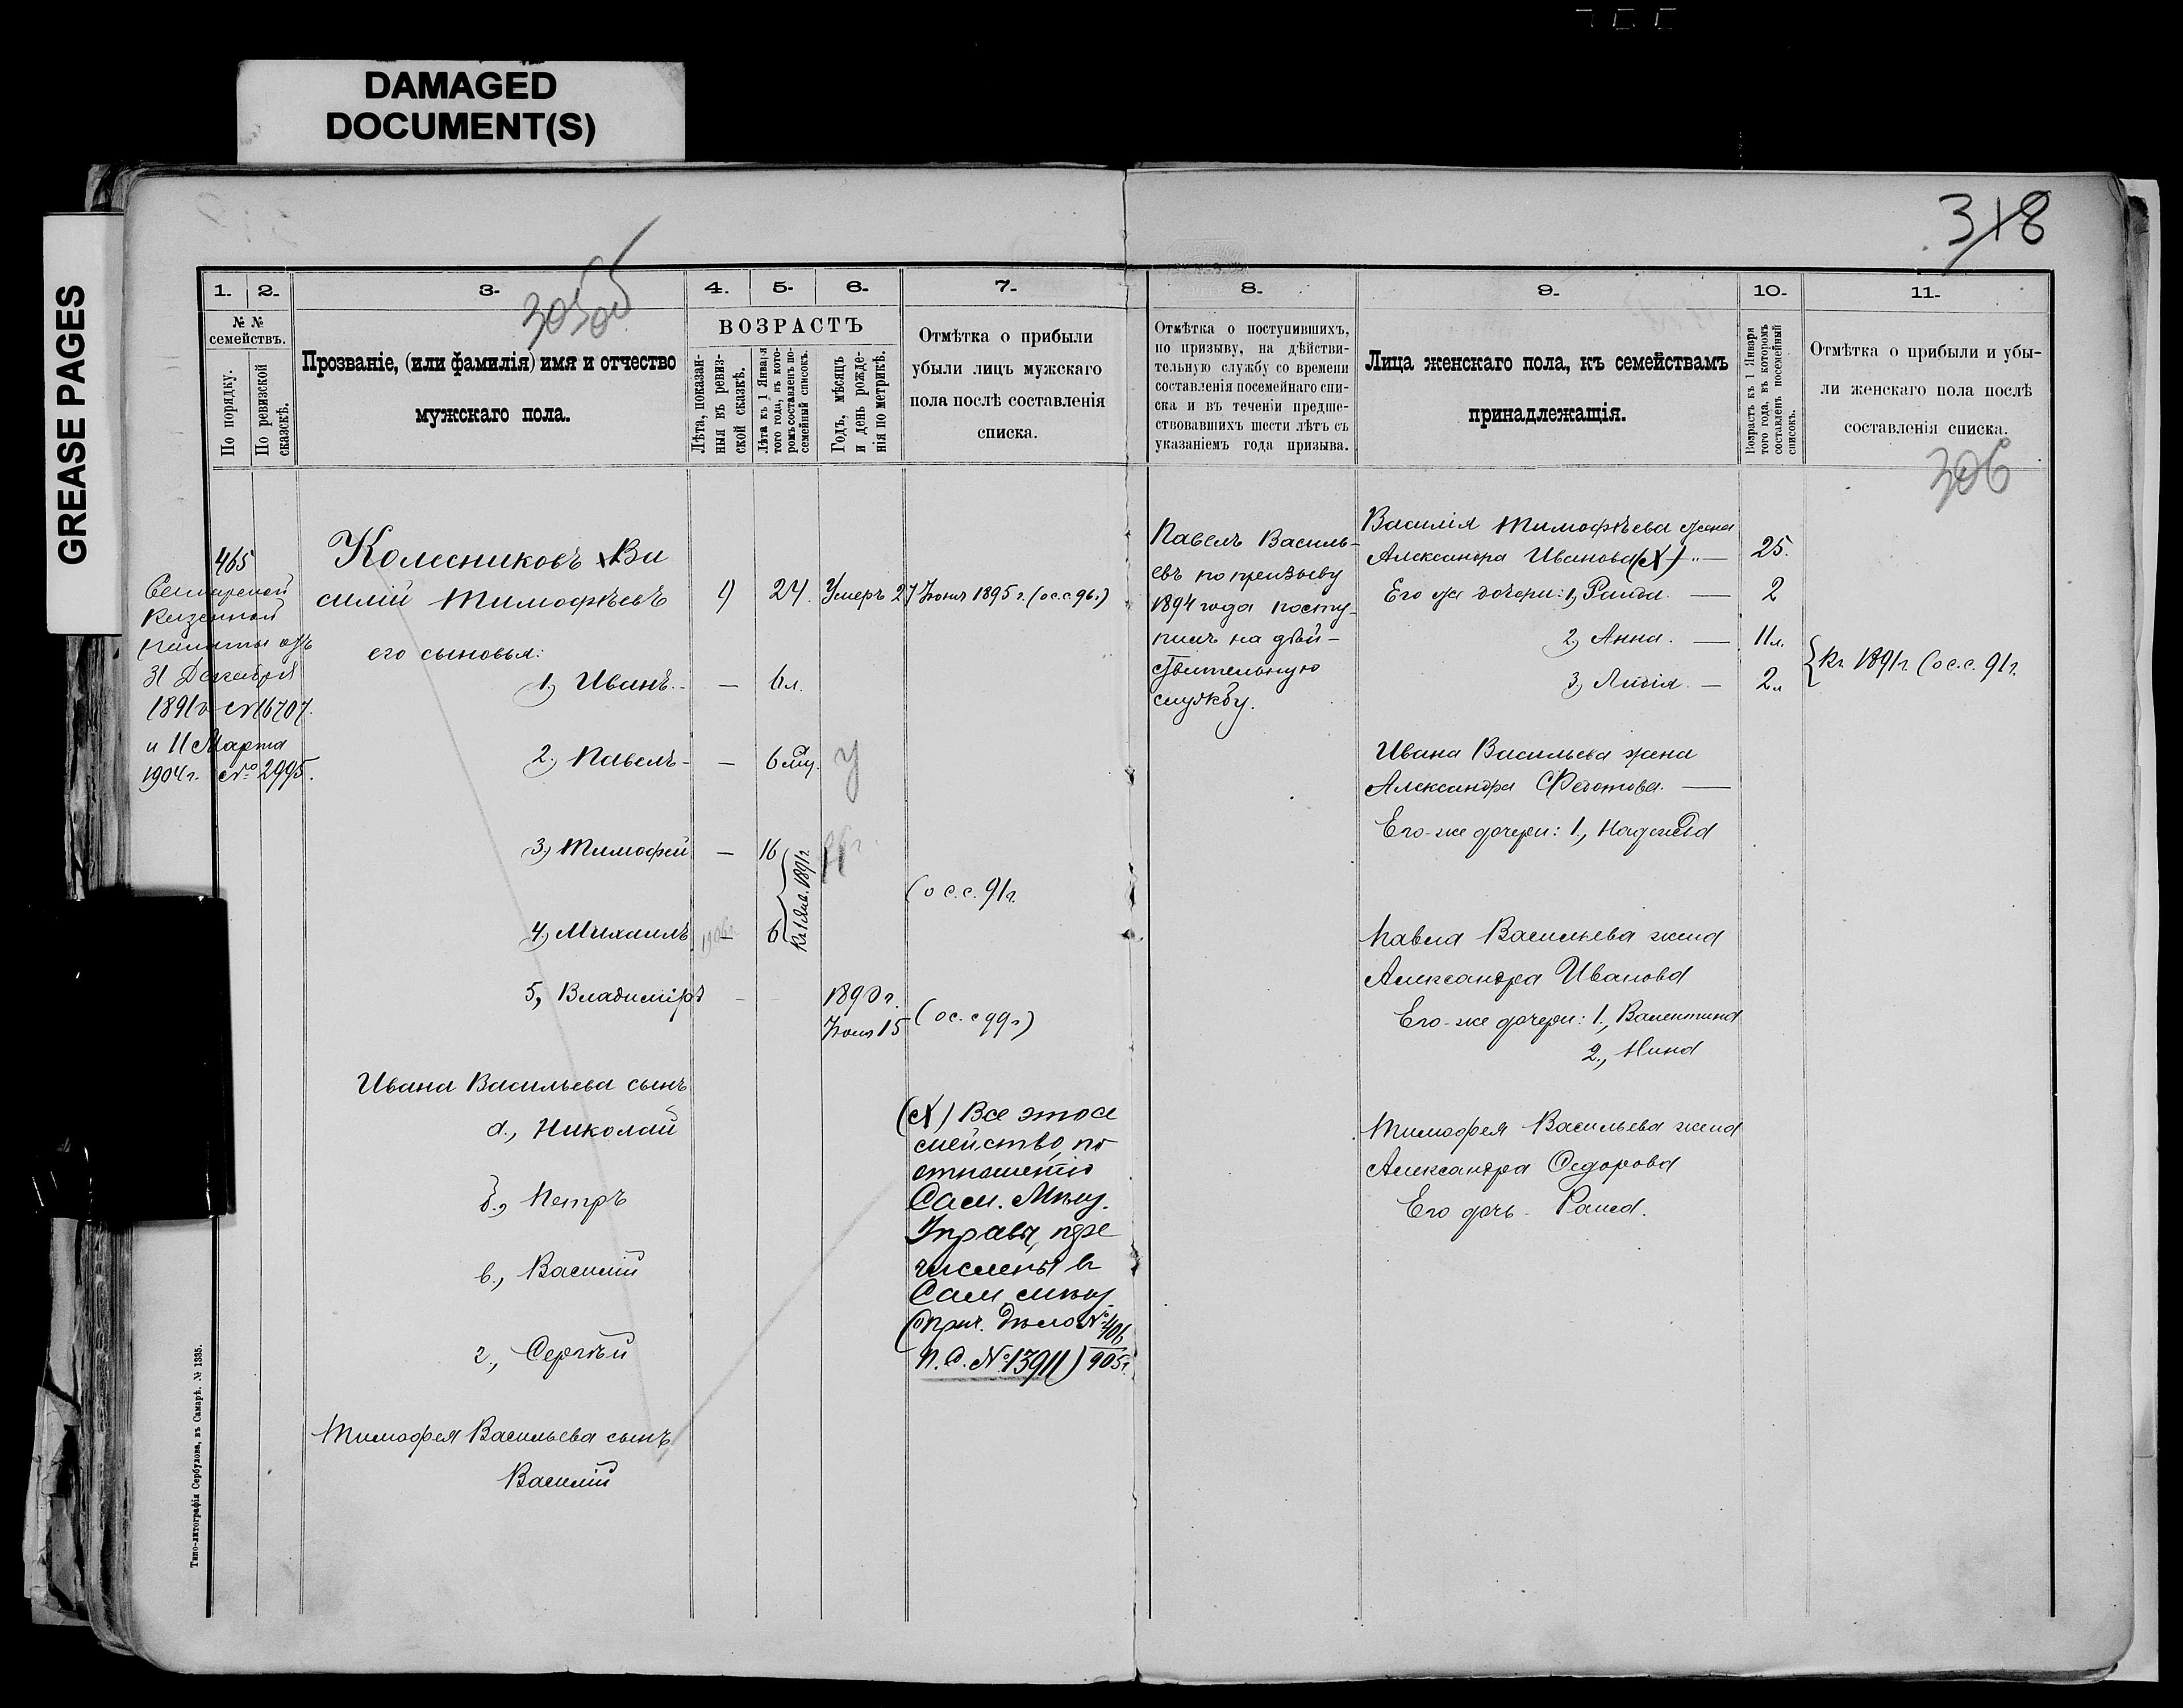 DAMAGED
DOCUMENT(S)
GREASE PAGES
318
305об
306
1.
2.
3.
4.
5.
6.
7.
8.
9.
10.
11.
№ №
семействъ.
По порядку.
По ревизской
сказкѣ.
Прозваніе, (или фамилія) имя и отчество
мужскаго пола.
ВОЗРАСТЪ
Лѣта, показан-
ныя въ ревиз-
ской сказкѣ.
Лѣта къ 1 Января
того года, въ кото-
ромъ составленъ по-
семейный списокъ.
Годъ, мѣсяцъ
и день рожде-
нія по метрикѣ.
Отмѣтка о прибыли
убыли лицъ мужскаго
пола послѣ составленія
списка.
Отмѣтка о поступившихъ,
по призыву, на дѣйстви-
тельную службу со времени
составленія посемейнаго спи-
ска и въ теченіи предше-
ствовавшихъ шести лѣтъ съ
указаніемъ года призыва.
Лица женскаго пола, къ семействамъ
принадлежащія.
Возрастъ къ 1 Января
того года, въ которомъ
составленъ посемейный
списокъ.
Отмѣтка о прибыли и убы-
ли женскаго пола послѣ
составленія списка.
465
Казенной
Палаты отъ
31 Декабря
1891г №16707.
и 11 Марта
1904 г. № 2995.
Колесниковъ Ва
силій Тимофѣевъ
24. Умеръ 27 Іюня 1895 г. (о с.с. 96 г)
его сыновья:
1) Иванъ. - — 6 л.
2) Павелъ - — 6 мц.
3) Тимофей — 16
4) Михаилъ — 6
къ 1 Янв. 1891 г.
(о с.с. 91 г.
5, Владиміръ
1890 г.
Іюля 15
(о с. с 99 г)
Ивана Васильева сынъ
а., Николай
б., Петръ
в., Василій
г., Сергѣй
Тимофея Васильева сынъ
Василій
(X) Все это се
мейство, по
отношенію
Сам. Мѣщ.
Управы, пере
числены въ
Сам. мѣщ.
(Прич. дѣло № 406
905 г.
П. О. № 13911)
Павелъ Василь-
евъ по призыву
1894 года посту-
пилъ на дѣй-
ствительную
службу.
Василія Тимофѣева жена
Александра Иванова (X) — 25.
Его же дочери: 1) Раида. — 2
2) Анна. — 11 л.
3) Лидія. — 2 л
къ 1891 г. (о с.с. 91 г.
Ивана Васильева жена
Александра Федотова. —
Его-же дочери: 1., Надежда
Павла Васильева жена
Александра Иванова
Его-же дочери: 1., Валентина
2., Нина
Тимофея Васильева жена
Александра Федорова
Его дочь - Раиса.
Типо-литографія Сербулова, въ Самарѣ. № 1335.